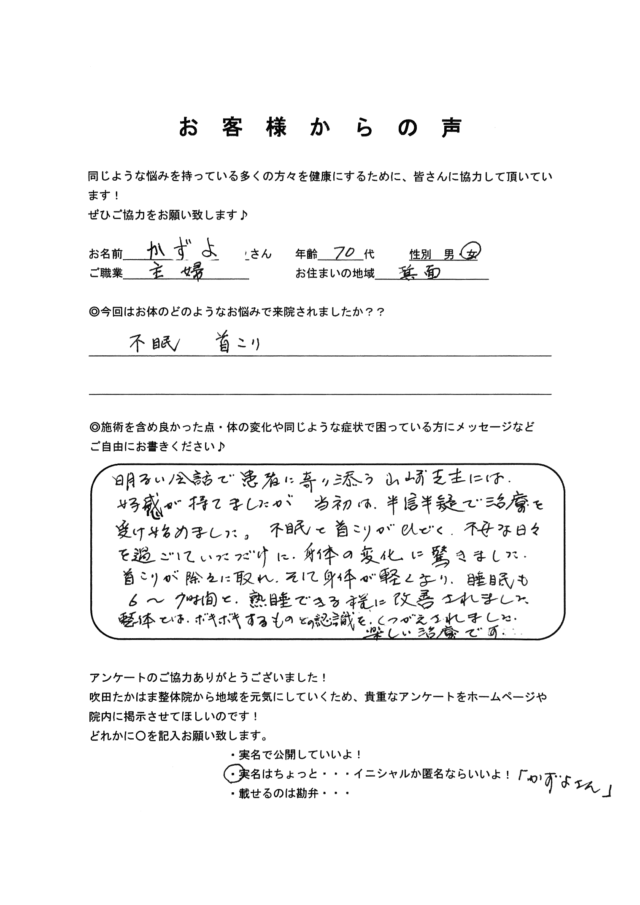 お客様からの声
同じような悩みを持っている多くの方々を健康にするために、皆さんに協力して頂いてい
ます！
ぜひご協力をお願い致します♪
お名前 かずよ さん 年齢 70 代 性別 男 女
ご職業 主婦 お住まいの地域 箕面
◎今回はお体のどのようなお悩みで来院されましたか？？
不眠 首こり
◎施術を含め良かった点・体の変化や同じような症状で困っている方にメッセージなど
ご自由にお書きください♪
明るい会話で患者に寄り添う山崎先生には、
好感が持てましたが 当初は、半信半疑で治療を
受け始めました。不眠と首こりがひどく、不安な日々
を過ごしていただけに、身体の変化に驚きました。
首こりが除々に取れ、そして身体が軽くなり、睡眠も
6～7時間と、熟睡できる様に改善されました
整体とは、ボキボキするものとの認識を、くつがえされました。
楽しい治療です。
アンケートのご協力ありがとうございました！
吹田たかはま整体院から地域を元気にしていくため、貴重なアンケートをホームページや
院内に掲示させてほしいのです！
どれかに〇を記入お願い致します。
・実名で公開していいよ！
・実名はちょっと・・・イニシャルか匿名ならいいよ！「かずよさん」
・載せるのは勘弁・・・